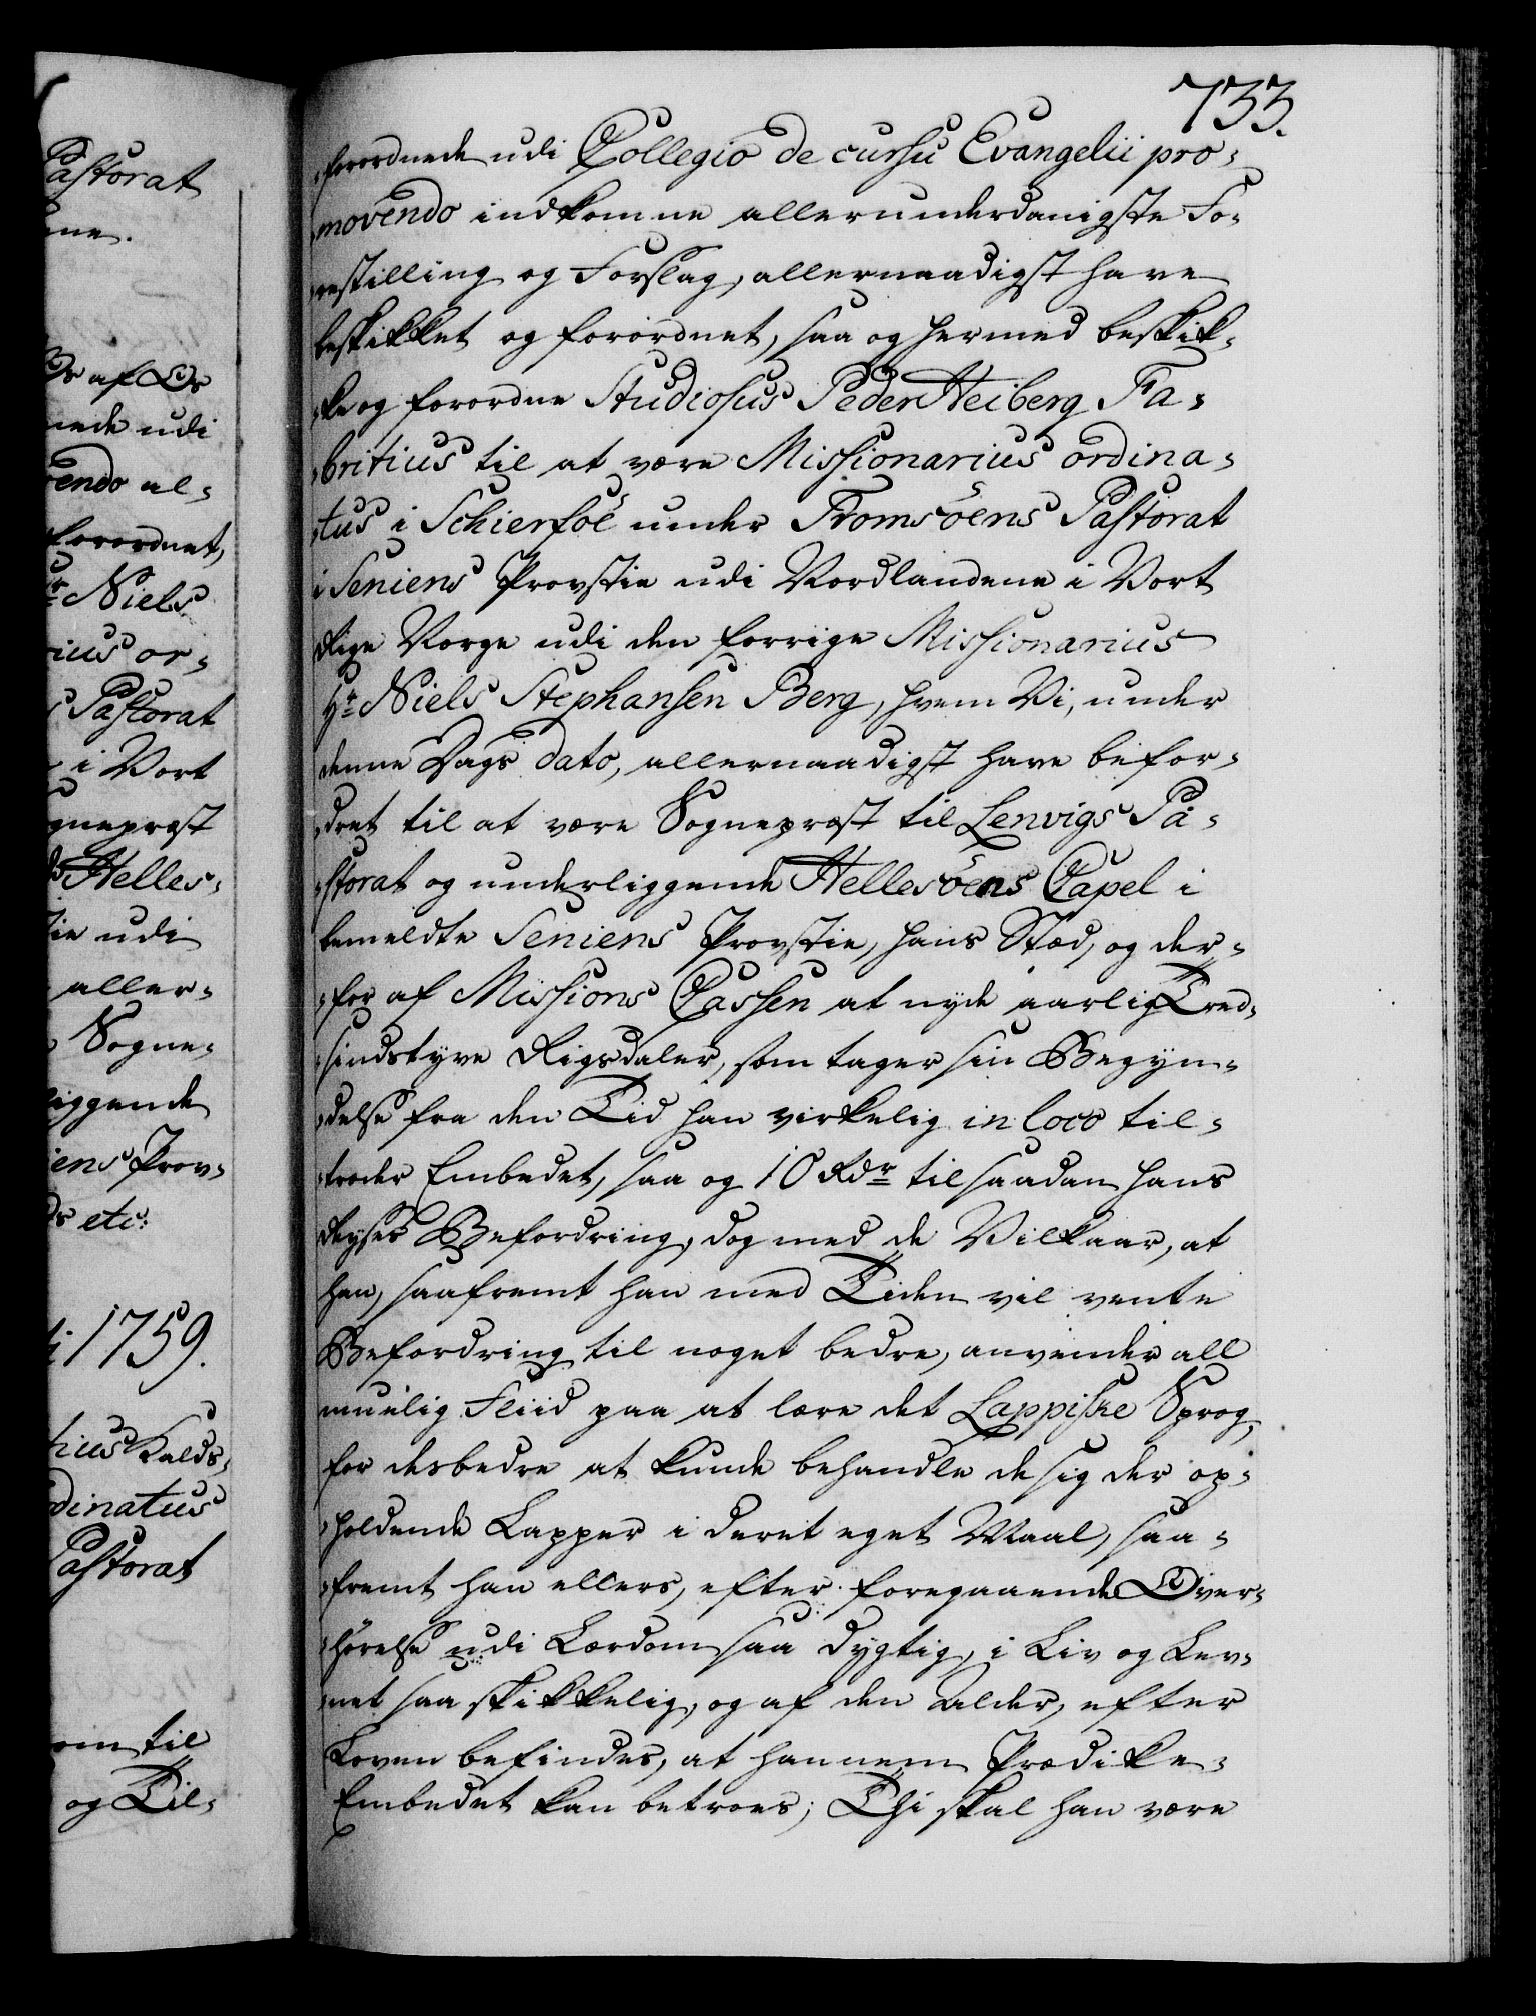 Pastorat
ne.
Os af Os
nede udi
vendo al-
forordnet,
Hr Niels
rius or-
Pastorat
i Vort
gneprest
Helles-
tie udi
aller-
Sogne-
liggende
iens Prov-
etc:
1759.
tius Kalds-
dinatus
Pastorat
om til
og Til-
733.
-forordnede udi Collegio de cursu Evangelii pro-
movendo indkomne allerunderdanigste Fo-
restilling og Forslag, allernaadigst have
beskikket og forordnet, saa og hermed beskik-
-ke og forordne Studiosus Peder Heiberg Fa-
-britius til at være Missionarius ordina-
-tus i Schierfoe under Tromsöens Pastorat
i Seniens Provstie udi Nordlandene i Vort
Rige Norge udi den forrige Missionarius
Hr Niels Stephansen Berg, hvem Vi, under
denne Dags dato, allernaadigst have befor-
-dret til at være Sogneprest til Lenvigs Pa-
-storat og underliggende Hellesöens Capel i
bemeldte Seniens Provstie, hans Stæd, og der-
-for af Missions Cassen at nyde aarlig Tred-
-sindstyve Rigsdaler, som tager sin Begyn-
-delse fra den Tid han virkelig in loco til-
-træder Embedet, saa og 10 Rdr til saadan hans
Reyses Befordring, dog med de Vilkaar, at
han, saafremt han med Tiden vil vente
Befordring til noget bedre, anvender all
muelig Fliid paa at lære det Lappiske Sprog,
for desbedre at kunde behandle de sig der op-
-holdende Lapper i deret eget Maal, saa-
-fremt han ellers, efter foregaaende Over-
-hörelse udi Lærdom saa dygtig, i Liv og Lev-
-net saa skikkelig, og af den Alder, efter
Loven befindes, at hannem Prædike-
Embedet kan betroes; Thi skal han være